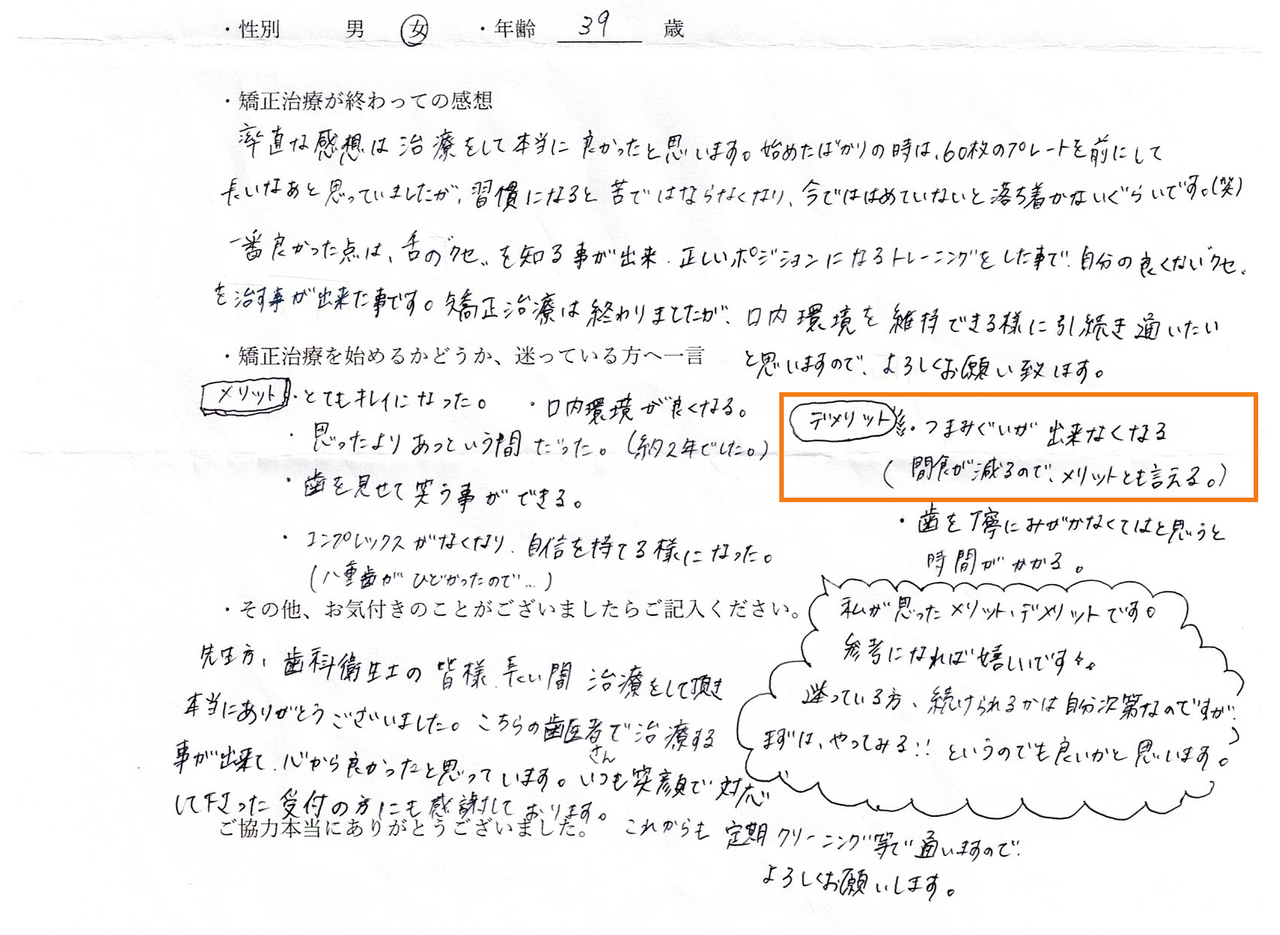 ・性別　男　女　・年齢　39　歳
・矯正治療が終わっての感想
率直な感想は治療をして本当に良かったと思います。始めたばかりの時は、60枚のプレートを前にして
長いなあと思っていましたが、習慣になると苦ではならなくなり、今でははめていないと落ち着かないぐらいです。(笑)
一番良かった点は、舌の"クセ"を知る事が出来、正しいポジションになるトレーニングをした事で、自分の良くない"クセ"
を治す事が出来た事です。矯正治療は終わりましたが、口内環境を維持できる様に引続き通いたい
と思いますので、よろしくお願い致します。
・矯正治療を始めるかどうか、迷っている方へ一言
メリット・とてもキレイになった。　・口内環境が良くなる。
・思ったよりあっという間だった。(約2年でした。)
・歯を見せて笑う事ができる。
・コンプレックスがなくなり、自信を持てる様になった。
(八重歯がひどかったので…)
デメリット・つまみぐいが出来なくなる
(間食が減るので、メリットとも言える。)
・歯を丁寧にみがかなくてはと思うと
時間がかかる。
私が思ったメリット、デメリットです。
参考になれば嬉しいです
迷っている方、続けられるかは自分次第なのですが、
まずは、やってみる!!というのでも良いかと思います。
・その他、お気付きのことがございましたらご記入ください。
先生方、歯科衛生士の皆様、長い間治療をして頂き
本当にありがとうございました。こちらの歯医者さんで治療する
事が出来て、心から良かったと思っています。いつも笑顔で対応
して下さった受付の方にも感謝しております。
ご協力本当にありがとうございました。
これからも定期クリーニング等で通いますので、
よろしくお願いします。